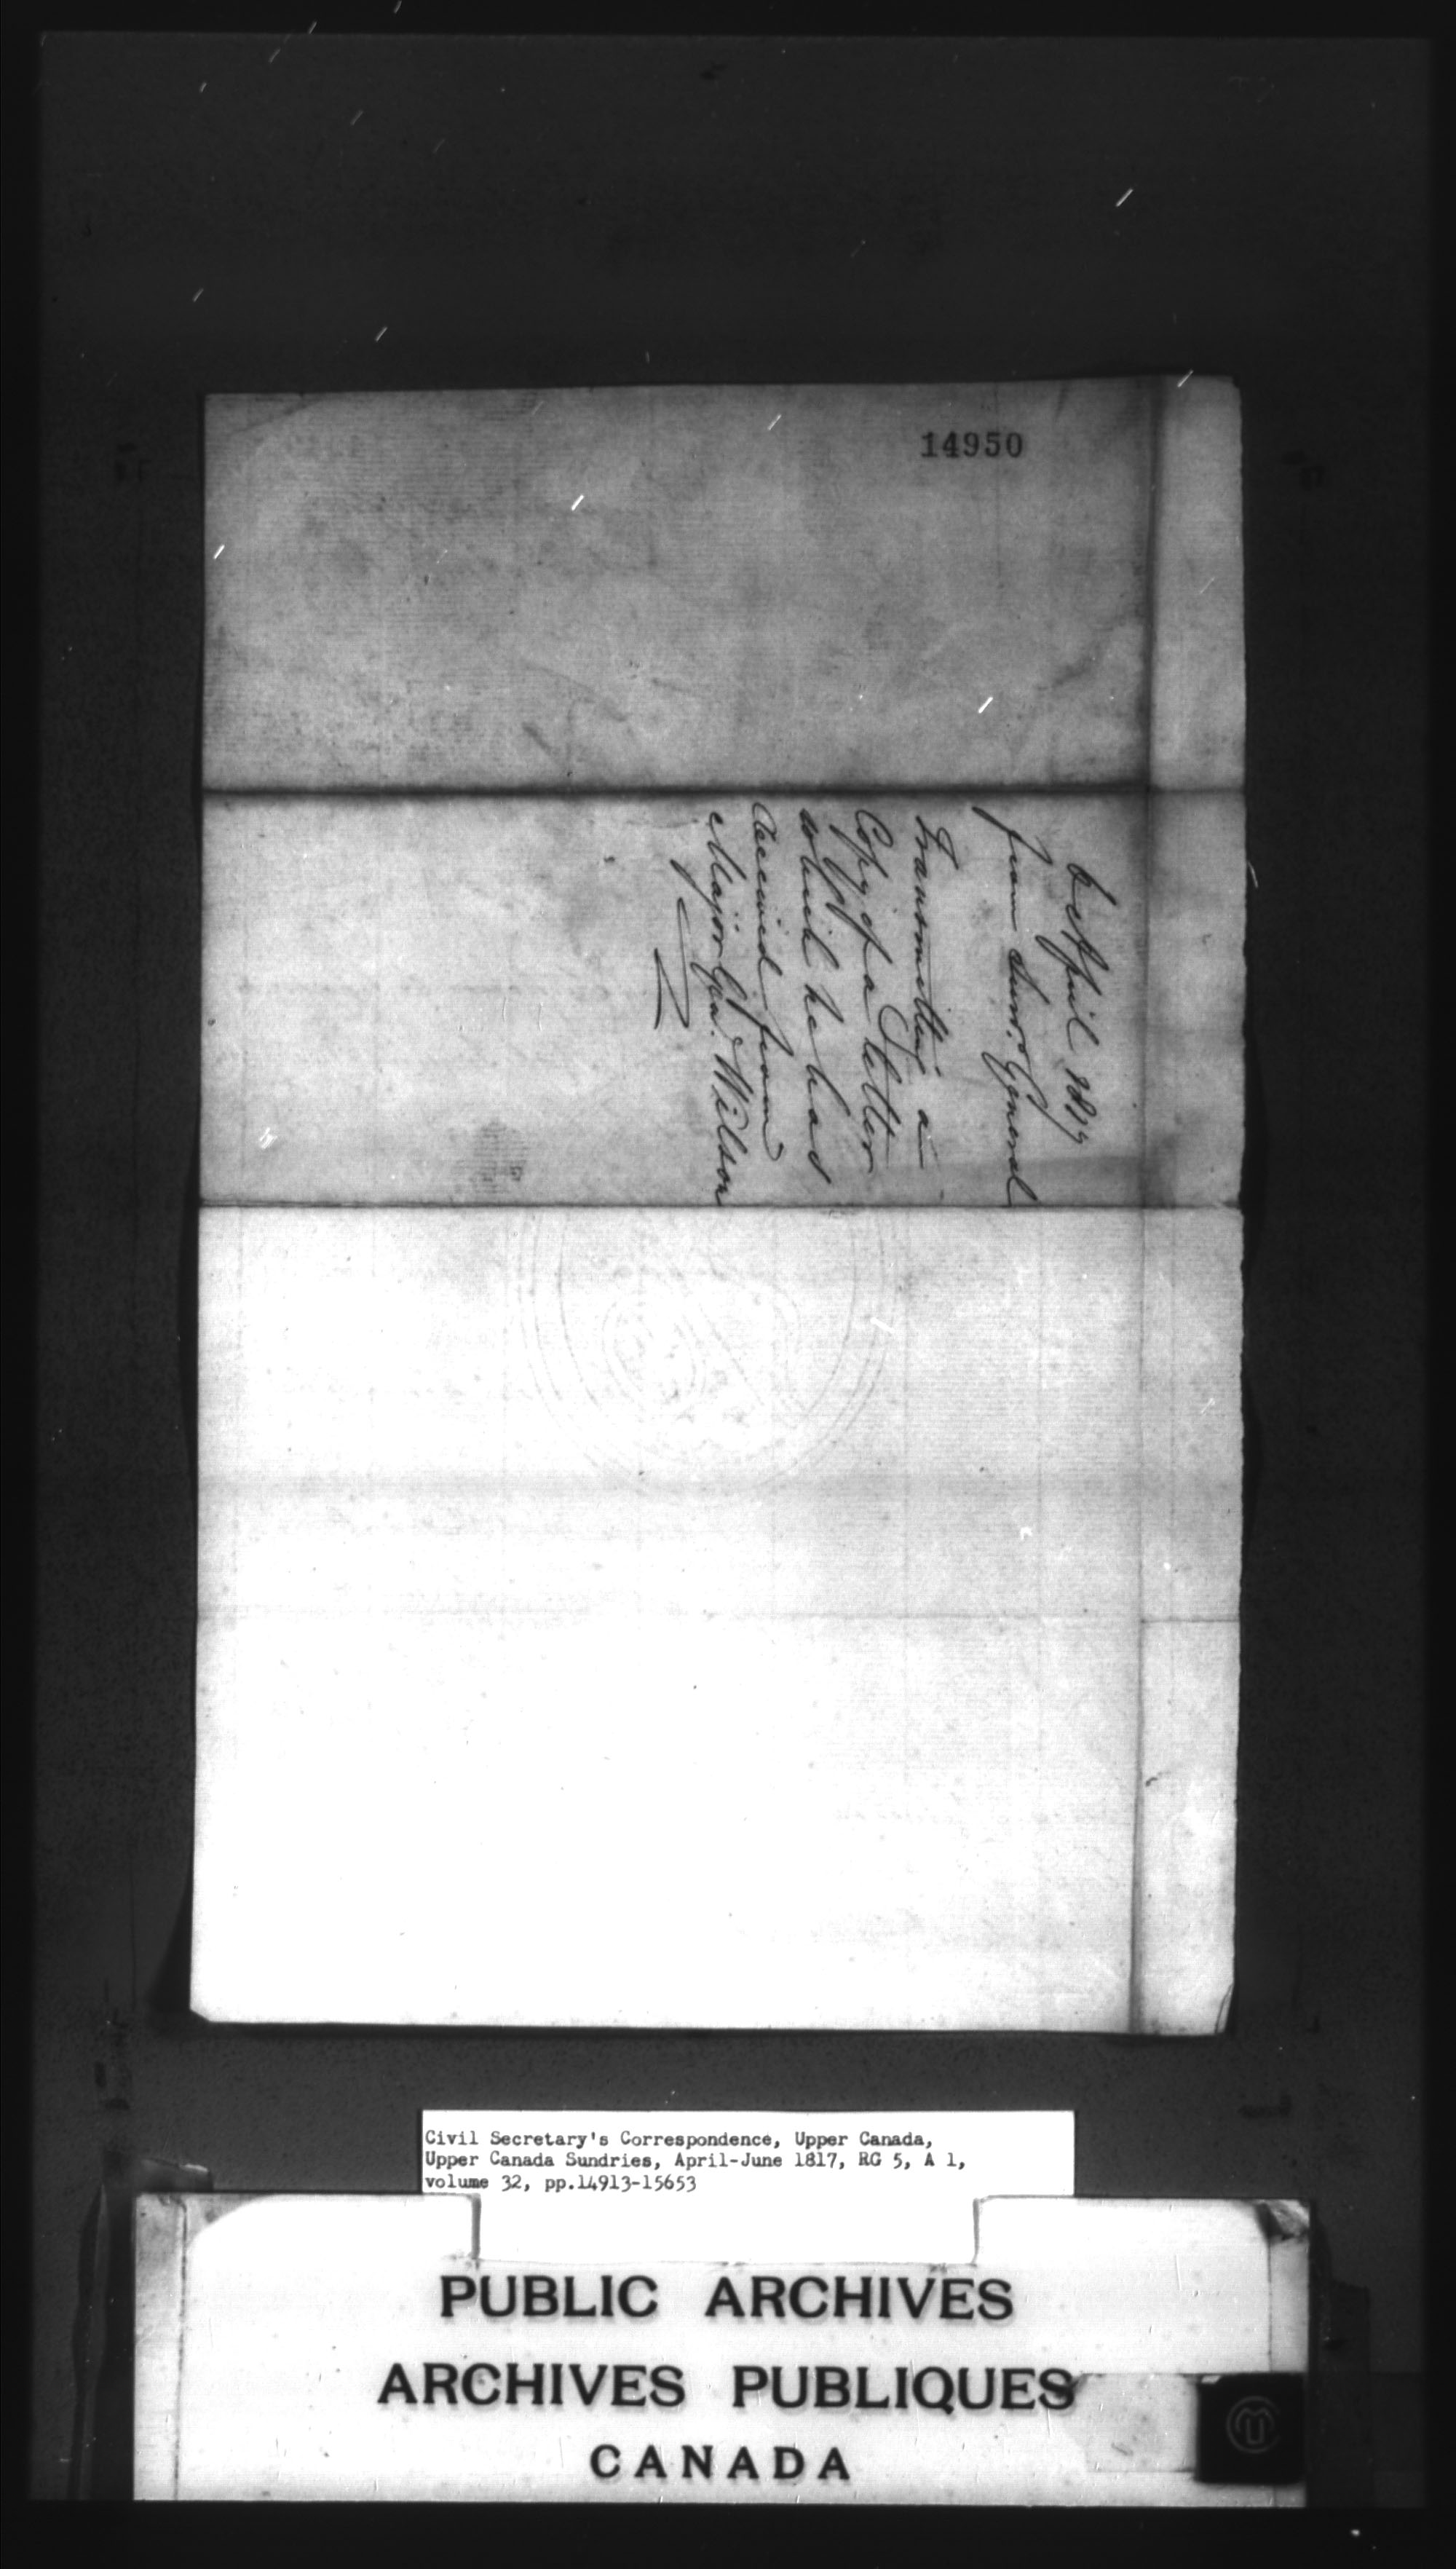 14950
6 April 1817
from Surv. General
Transmitting a
Copy of a letter
which he has
received from
Major Gen. Wilson
Civil Secretary's Correspondence, Upper Canada,
Upper Canada Sundries, April-June 1817, RG 5, A 1,
volume 32, pp.14913-15653
PUBLIC ARCHIVES
ARCHIVES PUBLIQUES
CANADA